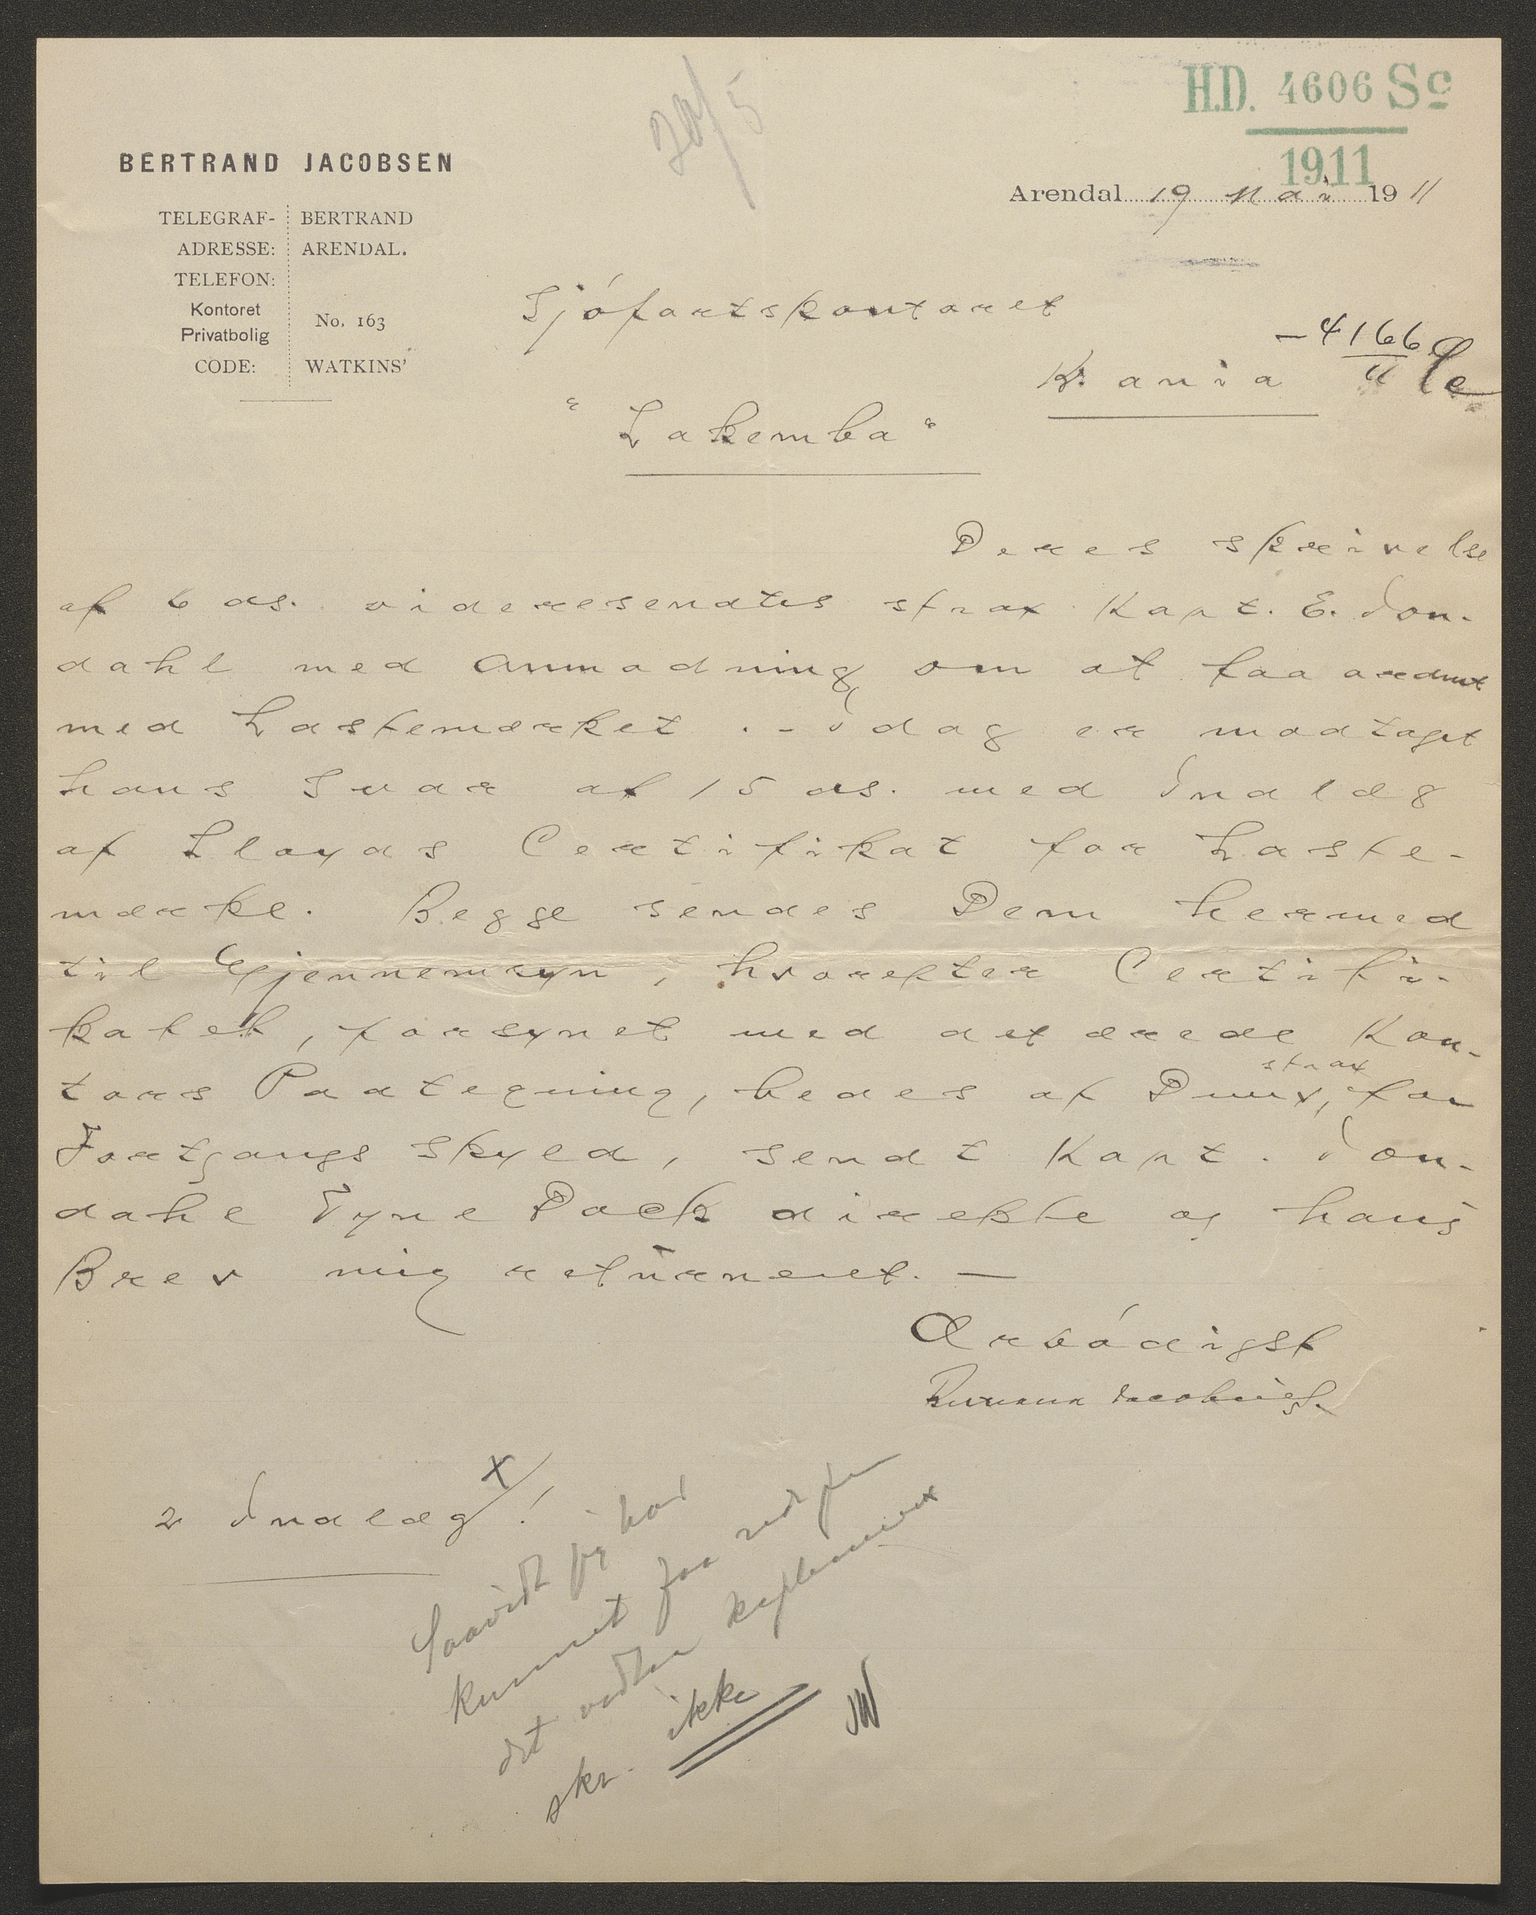 20/5
H.D. 4606 Sc
1911
BERTRAND JACOBSEN
TELEGRAF- BERTRAND
ADRESSE: ARENDAL.
TELEFON:
Kontoret
Privatbolig No. 163
CODE: WATKINS'
Arendal 19 Mai 1911
Sjófartskontoret
- 4166
11
Kr.ania
"Lakemba"
Deres skrivelse
af 6 ds. videresendtes strax Kapt. E. Ion-
dahl med Anmodning om at faa ordnet
med Lastemærket. - Idag er modtaget
hans Svar af 15 ds. med Indlæg
af Lloyds Certifikat for Laste-
mærke. Begge sendes Dem hermed
til Gjennemsyn, hvorefter Certifi-
katet, forsynet med det ærede Kon-
strax
tors Paategning, bedes af Dem, for
Fortgangs Skyld, sendt Kapt. Ion-
dahl Tyne Dock direkte og hans
Brev mig returneret. -
Ærbódigst
Bertrand Jacobsen
2 Indlæg x!
Saavidt jeg har
kunnet faa ud fra
det vedtar
skr. ikke
JW